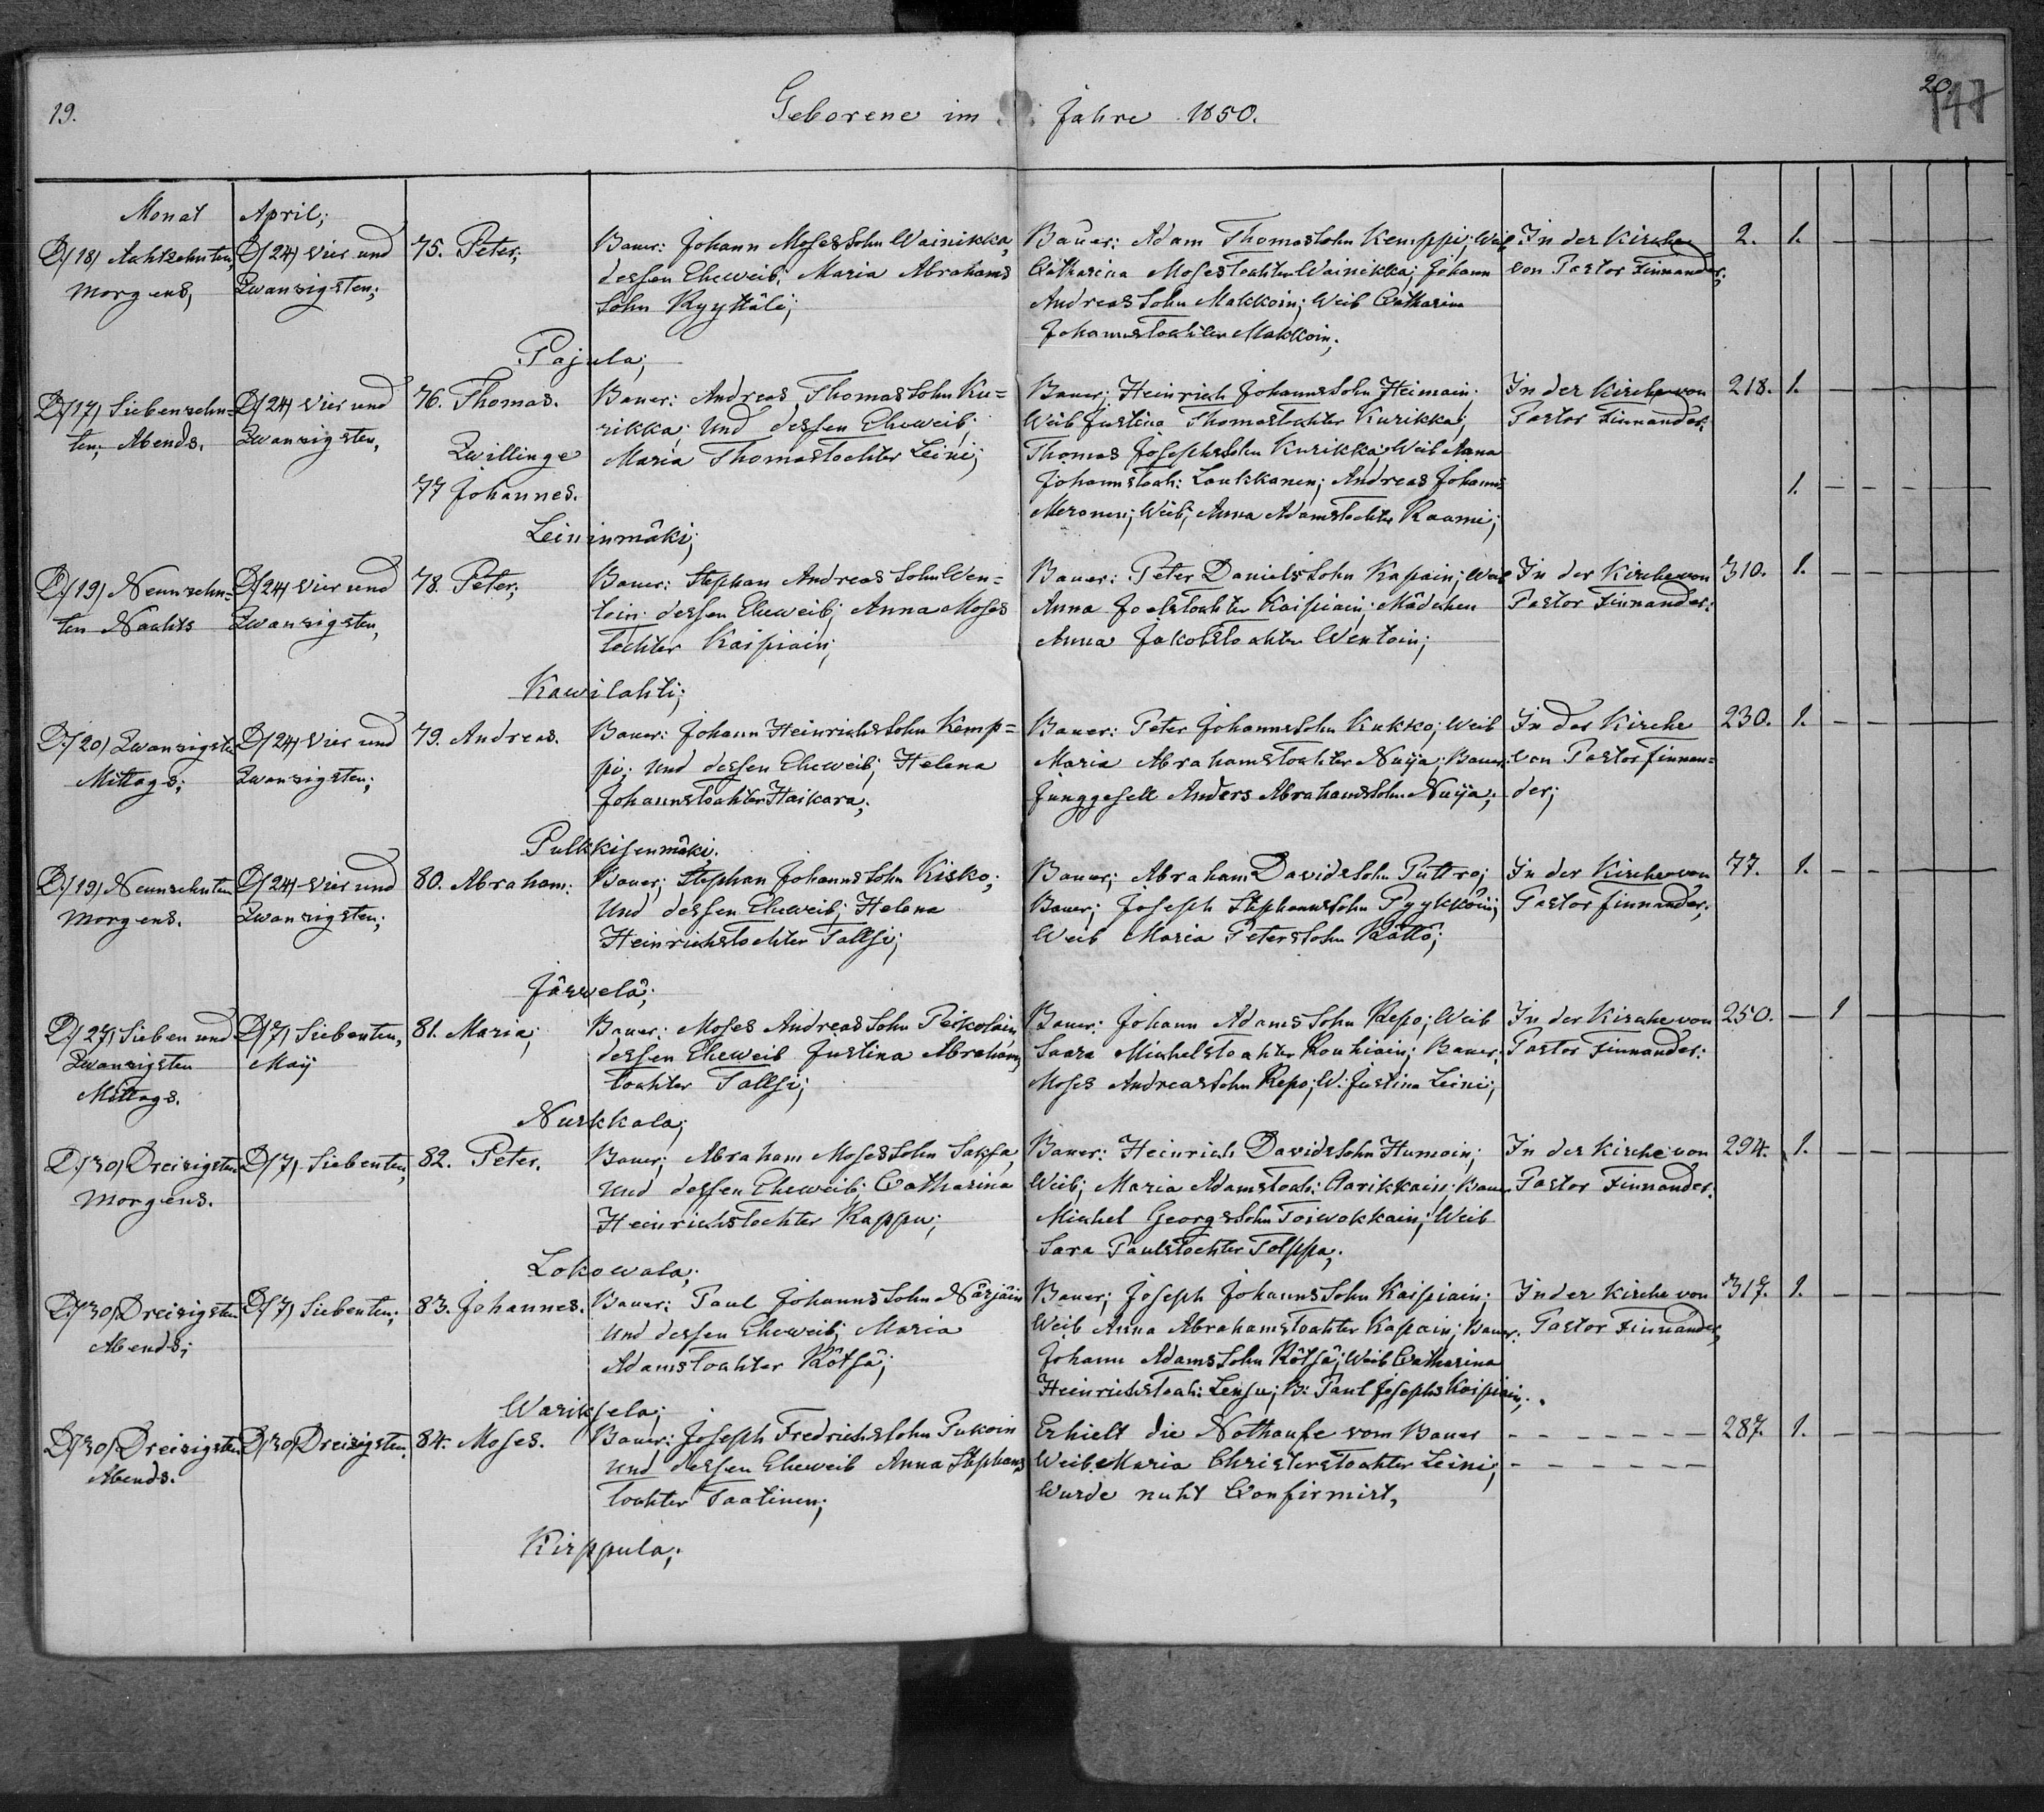 19.
Geborene im Jahre 1850.
20.
147
Monat April;
D/18/ Achtzehnten, Morgens,
D/24/ Vier und Zwanzigsten;
75. Peter;
Bauer: Johann Moses Sohn Wainikka,
dessen Eheweib; Maria Abrahams
Sohn Ryyttäli;
Bauer: Adam Thomas Sohn Kemppi; Weib
Catharina Moses Tochter Wainikka; Johann
Andreas Sohn Makkoin; Weib Catharina
Johanns Tochter Makkoin;
In der Kirche
von Pastor Finnander;
2. 1. — — — — —
Pajula;
D/17/ Siebenzehn=
ten; Abends.
D/24/ Vier und
Zwanzigsten,
76. Thomas.
Zwillinge
77 Johannes.
Bauer: Andreas Thomas Sohn Ku=
rikka; Und dessen Eheweib;
Maria Thomastochter Leini;
Bauer; Heinrich Johanns Sohn Heimain;
Weib Justina Thomastochter Kurikka;
Thomas Josephs Sohn Kurikka; Weib Anna
Johannstoch: Laukkanen; Andreas Johanns=
Meronen; Weib; Anna Adamstochter Raami;
In der Kirche von
Pastor Finnander.
218. 1. — — — — —
1. — — — — —
Leininmäki;
D/19/ Neunzehn=
ten Nachts
D/24/ Vier und
Zwanzigsten,
78. Peter;
Bauer: Stephan Andreas Sohn Wen=
toin; dessen Eheweib; Anna Moses
tochter Kaipiain;
Bauer: Peter Daniels Sohn Kapain; Weib
Anna Joelstochter Kaipiain; Mädchen
Anna Jakobstochter Wentoin;
In der Kirche von
Pastor Finnander:
310. 1. — — — — —
Kawilahti;
D./20/ Zwanzigste
Mittags;
D/24/ Vier und
Zwanzigsten;
79. Andreas.
Bauer: Johann Heinrichs Sohn Kemp=
pi; Und dessen Eheweib; Helena
Johannstochter Haikara;
Bauer: Peter Johanns Sohn Kukko; Weib
Maria Abrahamstochter Nuija; Bauer:
Junggesell Anders Abrahams Sohn Nuija;
In der Kirche
von Pastor Finnan=
der;
230. 1. — — — — —
Pulkkisenmäki.
D./19/ Neunzehnten
Morgens.
D/24/ Vier und
Zwanzigsten;
80. Abraham:
Bauer; Stephan Johanns Sohn Kisko;
Und dessen Eheweib; Helena
Heinrichstochter Tallsi;
Bauer; Abraham Davids Sohn Puttro;
Bauer; Joseph Stephanns Sohn Pyykköin;
Weib Maria Peters Sohn Rättö;
In der Kirche von
Pastor Finnander;
77. 1. — — — — —
Järwelä;
D./27/ Sieben und
Zwanzigsten
Mittags.
D/7/ Siebenten,
Maÿ
81. Maria;
Bauer: Moses Andreas Sohn Peikolain
dessen Eheweib Justina Abrahams
tochter Tallsi;
Bauer: Johann Adams Sohn Repo; Weib
Saara Michelstochter Rouhiain; Bauer:
Moses Andreas Sohn Repo; W. Justina Leini;
In der Kirche von
Pastor Finnander:
250. — 1 — — — —
Nurkkala;
D./30/ Dreizigsten
Morgens.
D/7/ Siebenten,
82. Peter.
Bauer; Abraham Moses Sohn Saksa,
Und dessen Eheweib; Catharina
Heinrichstochter Kappu;
Bauer: Heinrich Davids Sohn Humoin;
Weib; Maria Adamstoch: Aarikkain; Bauer.
Michel Georgs Sohn Toiwokkain; Weib
Sara Paulstochter Tolppa;
In der Kirche von
Pastor Finnander.
294. 1. — — — — —
Lokowala;
D./30/ Dreizigsten
Abends;
D./7/ Siebenten;
83. Johannes.
Bauer: Paul Johanns Sohn Närjäin
Und dessen Eheweib; Maria
Adamstochter Rötsä;
Bauer; Joseph Johanns Sohn Kaipiain;
Weib Anna Abrahamstochter Kapain; Bauer.
Johann Adams Sohn Rötsä; Weib Catharina
Heinrichstoch: Lensu; B: Paul Josephs Kaipiain;
In der Kirche von
Pastor Finnander,
317. 1. — — — — —
Wariksela;
D/30/ Dreizigsten
Abends.
D/30/ Dreizigsten.
84. Moses.
Bauer: Joseph Fredrichs Sohn Pukoin
Und dessen Eheweib Anna Stephans
tochter Taatinen;
Erhielt die Nothaufe vom Bauer
Weib. Maria Christerstochter Leini,
Wurde nicht Confirmirt,
- - - - - -
- - - - - -
287. 1. — — — — —
Kirppula;